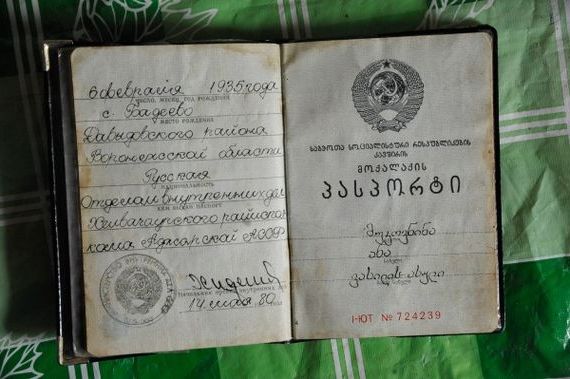 6 февраля 1935 года
число, месяц, год рождения
с. Бадеево
место рождения
Давыдовского района
Воронежской области
Русская
национальность
Отделом внутренних дел
кем выдан паспорт
Хелвачаурского райисполкома Аджарской АССР
14 мая 80
საბჭოთა სოციალისტური რესპუბლიკების
კავშირის
მოქალაქის
პასპორტი
ანა
სახელი
ვასილის ასული
I-ЮТ № 724239